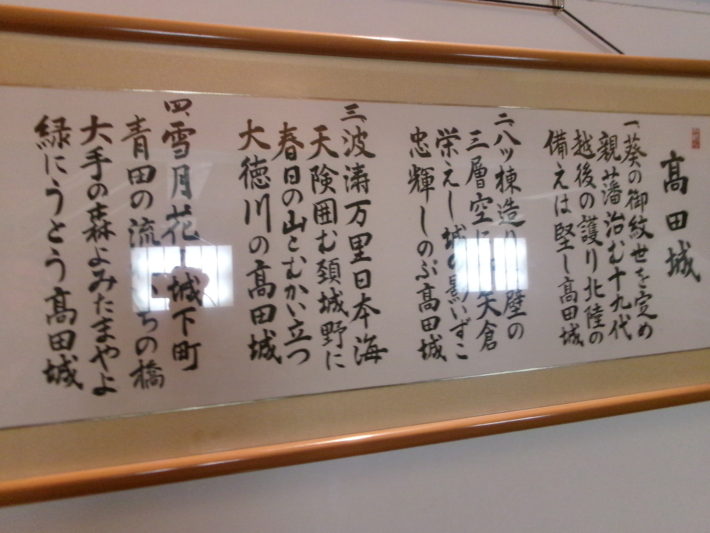 高田城
一、葵の御紋世を定め
親藩治む十九代
越後の護り北陸の
備えは堅し高田城
二、八ッ棟造り 壁の
三層空に 天倉
栄えし城の影いずこ
忠輝しのぶ高田城
三、波濤万里日本海
天険囲む頚城野に
春日の山とむかい立つ
大徳川の高田城
四、雪月花 城下町
青田の流 ちの橋
大手の森よみたまやよ
緑にうとう高田城